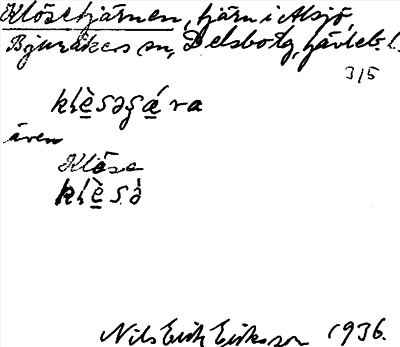 Klösetjärnen, tjärn i Alsjö,
Bjuråkers sn, Delsbo tg, Gävleb. l.
3/5
klè̱səʂǽ̱ra
även
Klöse
klè̱sə̀
Nils Erik Eriksson 1936.